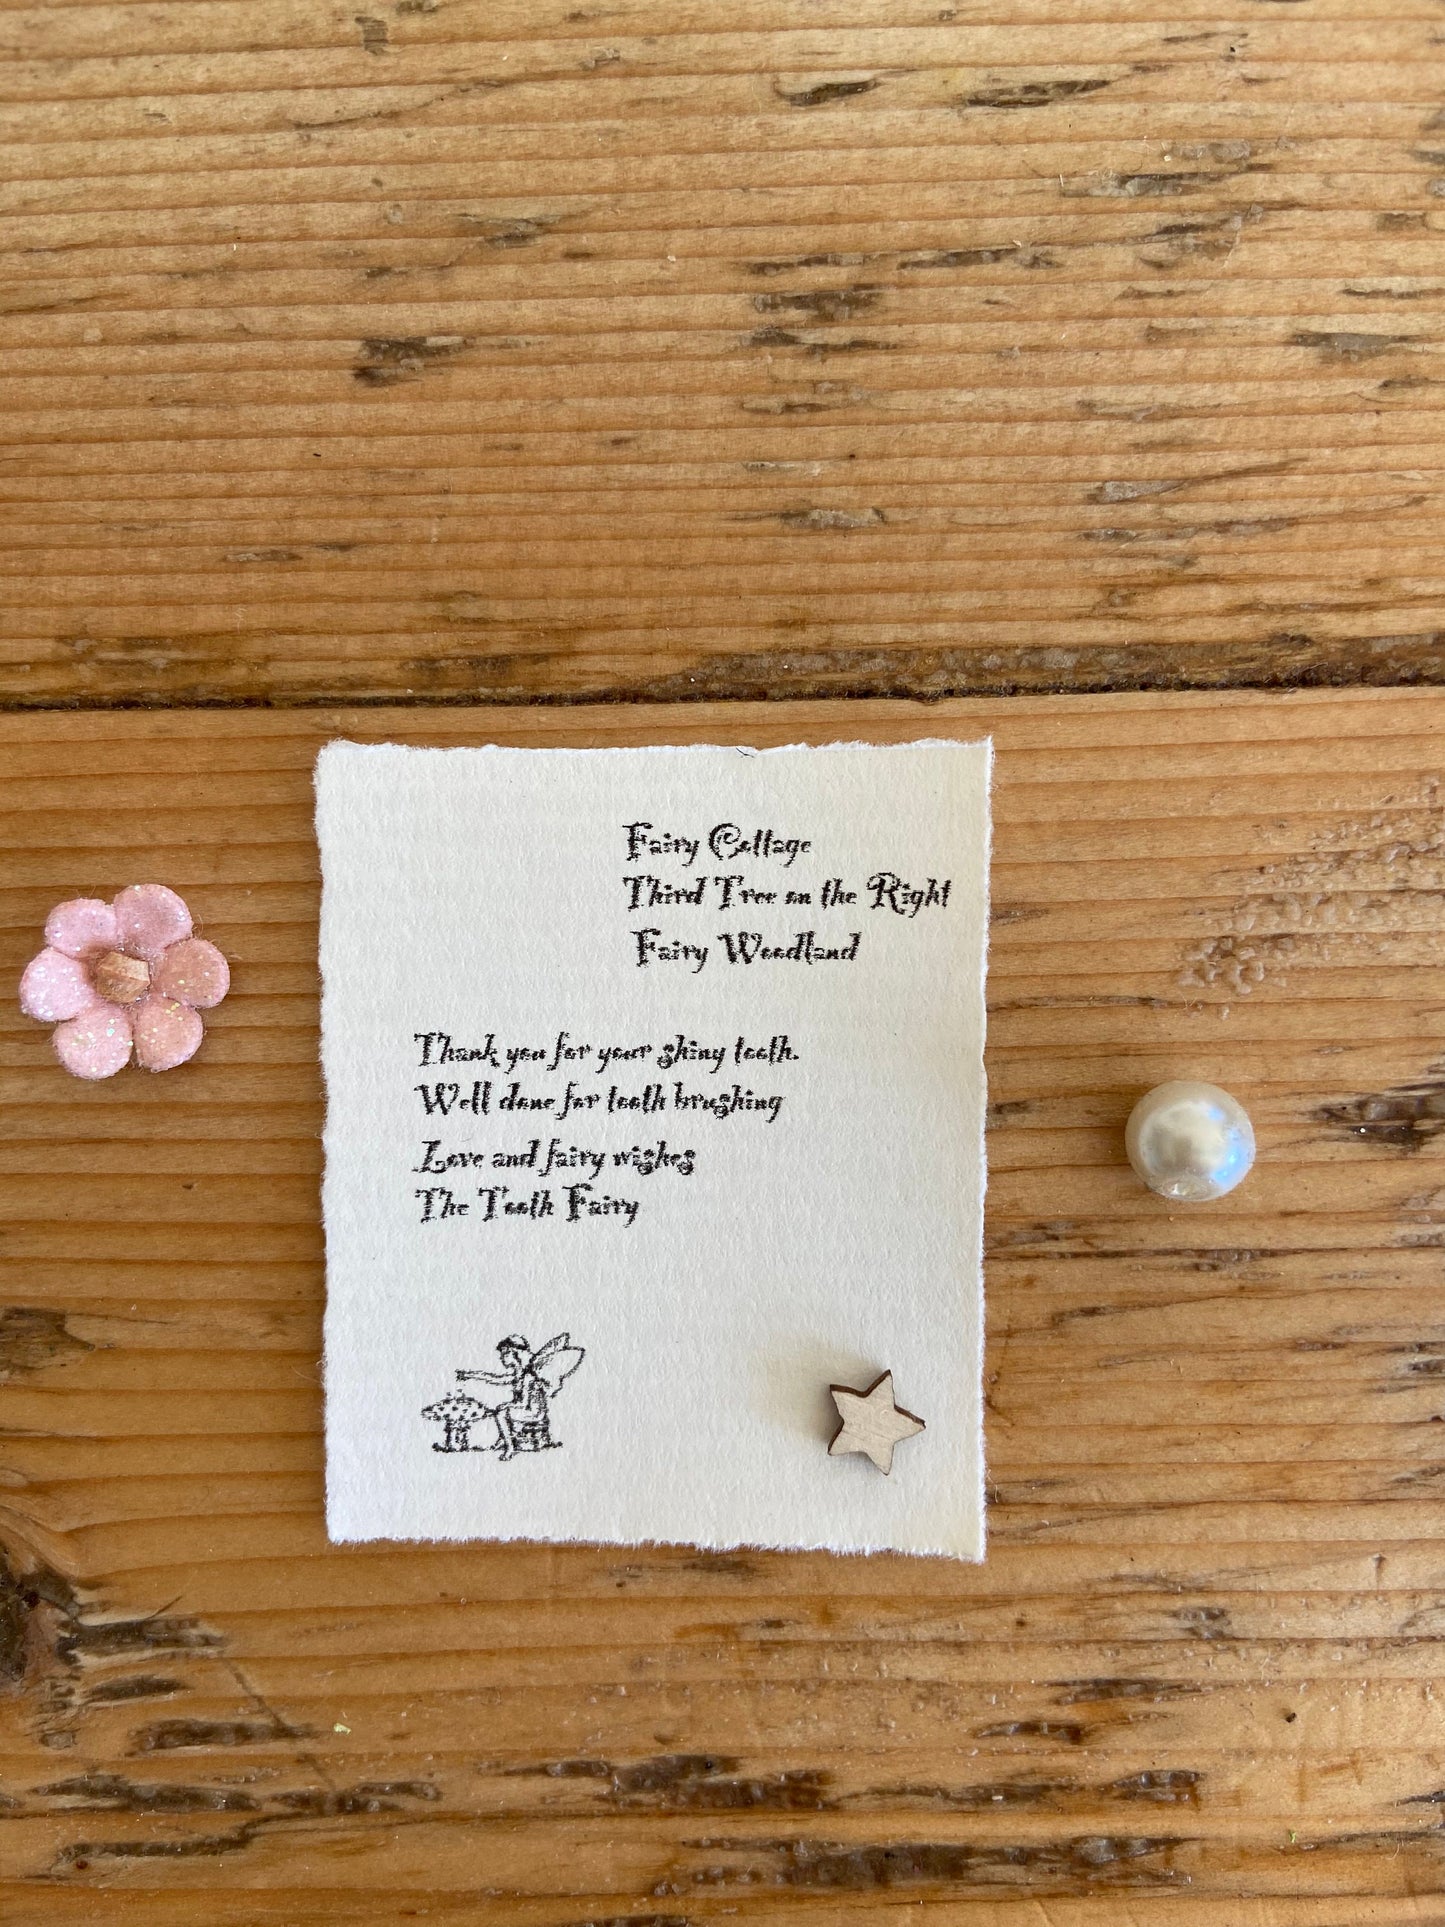 Fairy Cottage
Third Tree on the Right
Fairy Woodland
Thank you for your shiny tooth.
Well done for tooth brushing
Love and fairy wishes
The Tooth Fairy